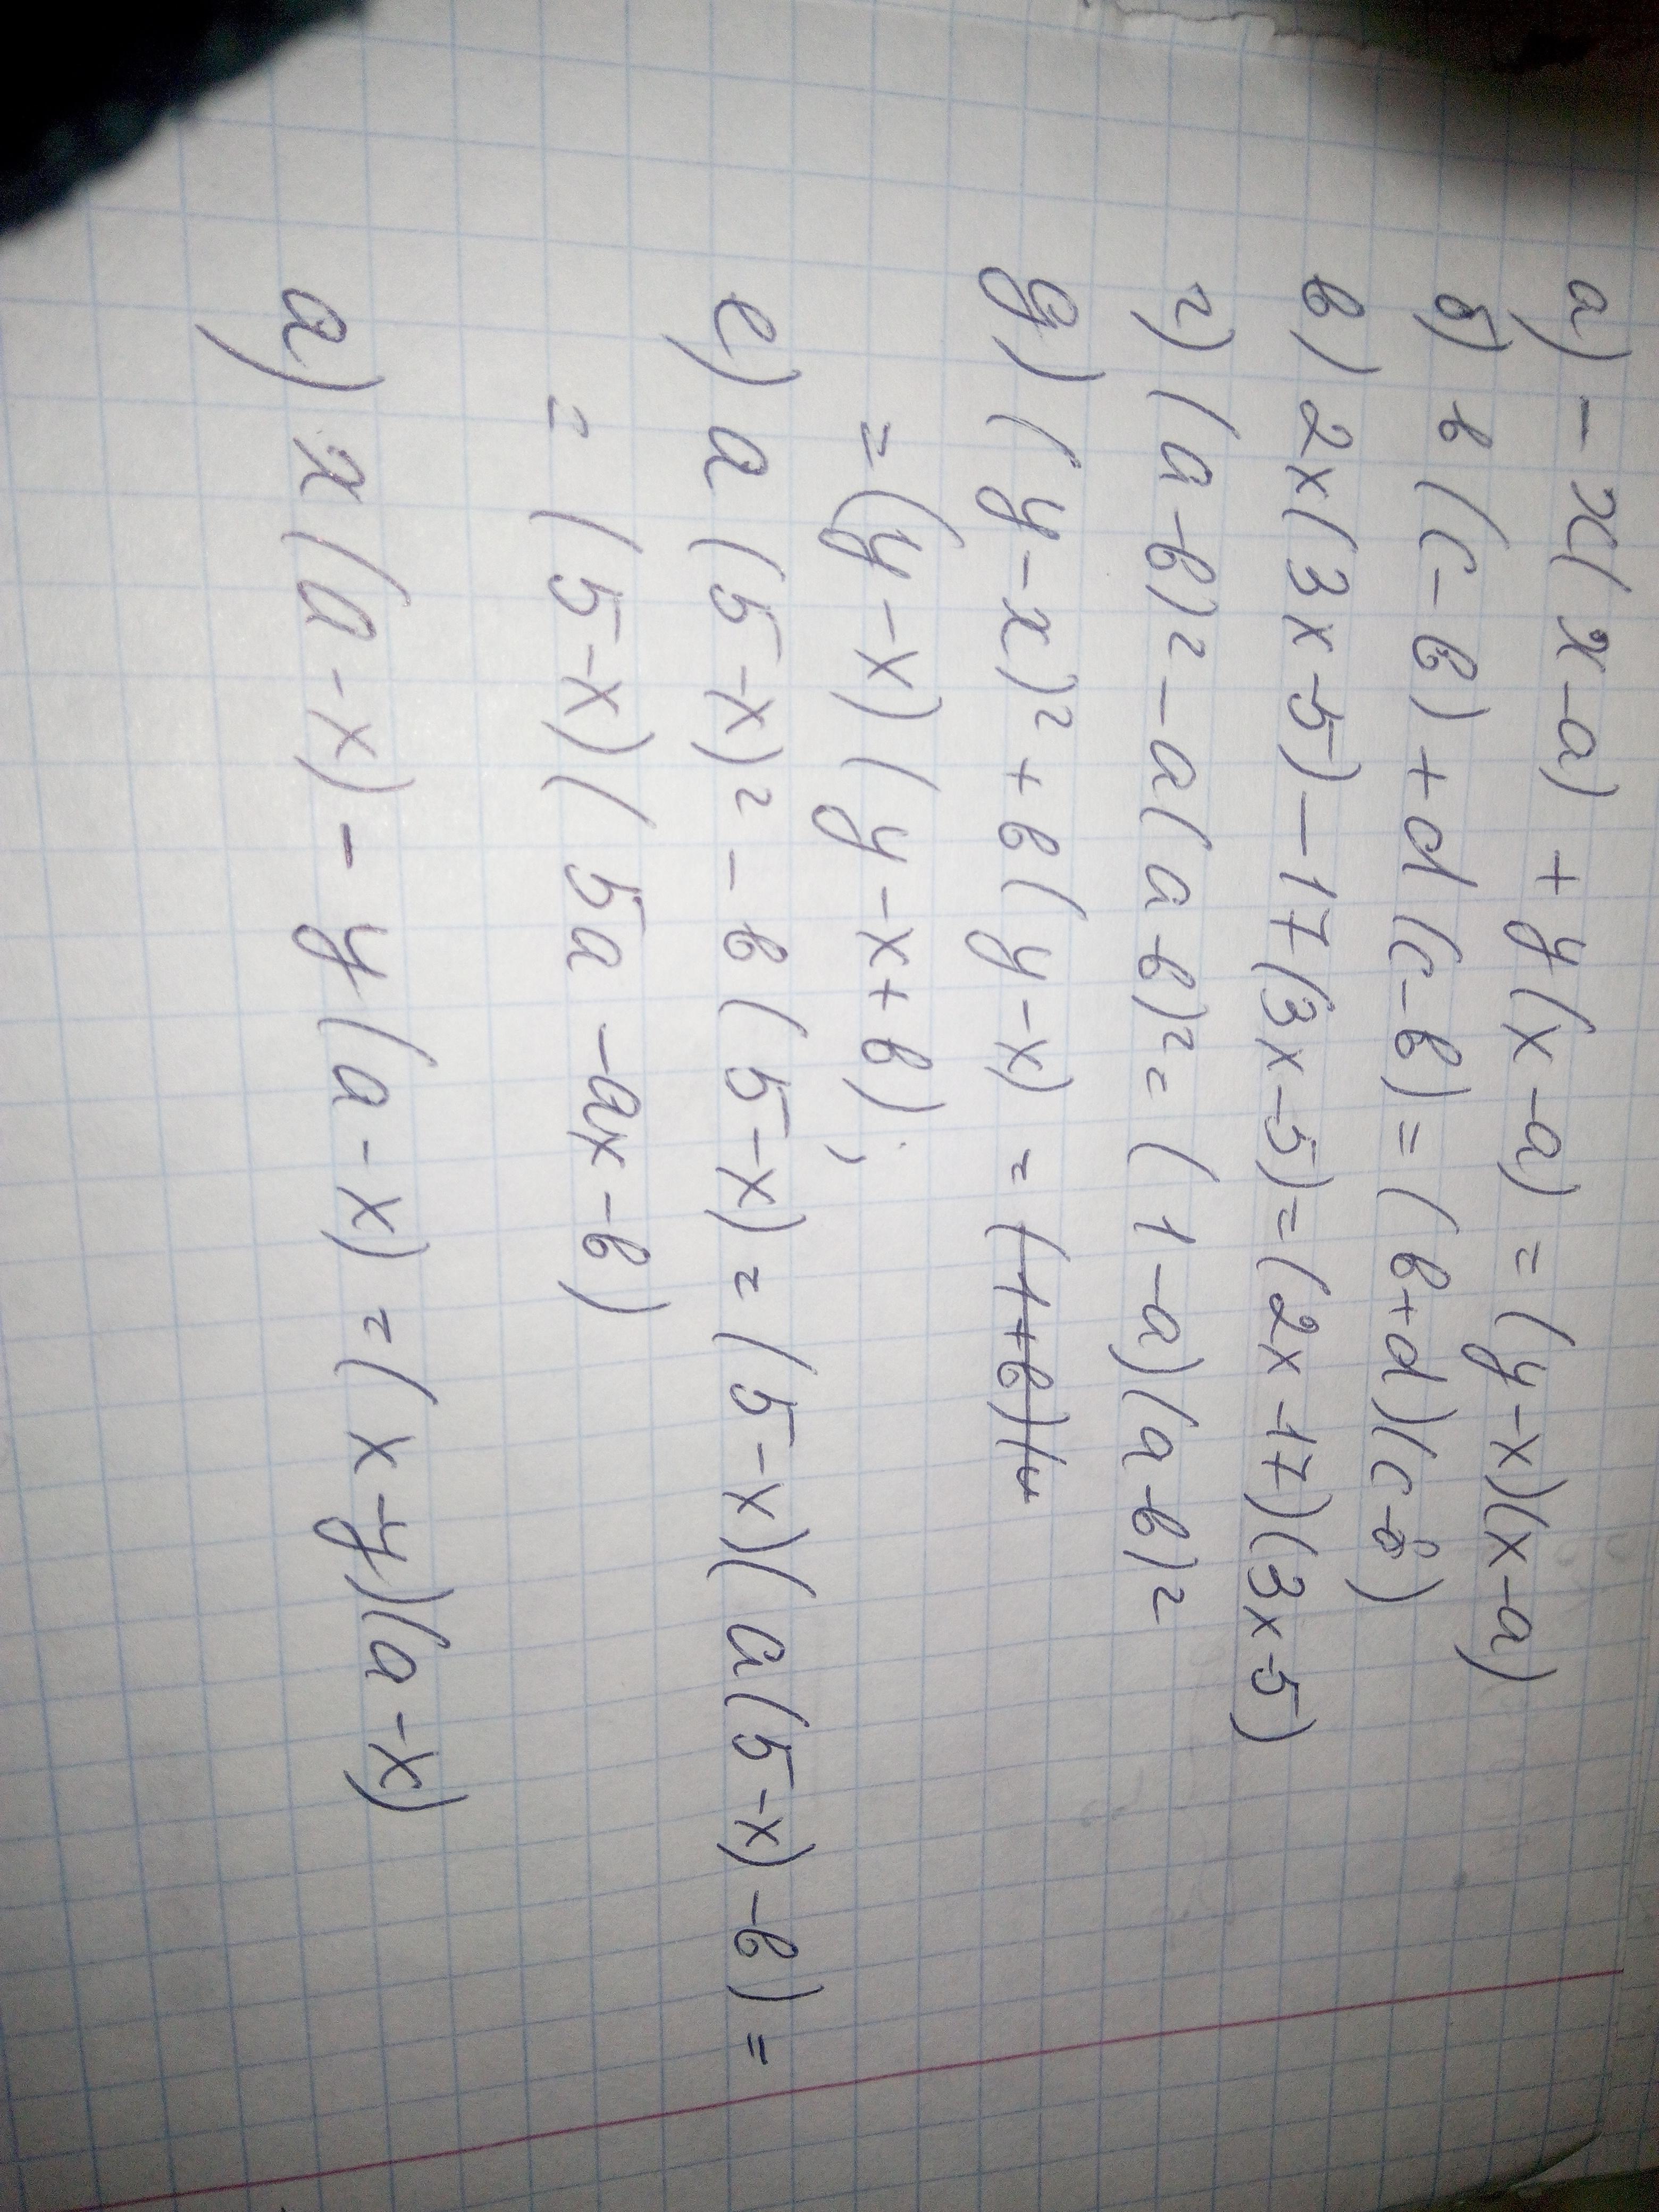 а) -x(x-a)+y(x-a)=(y-x)(x-a)
б) в(c-в)+d(c-в)=(в+d)(c-в)
в) 2x(3x-5)-17(3x-5)=(2x-17)(3x-5)
г) (a-в)²-a(a-в)²=(1-a)(a-в)²
д) (y-x)²+в(y-x)=
=(y-x)(y-x+в);
е) a(5-x)²-в(5-x)=(5-x)(a(5-x)-в)=
=(5-x)(5a-ax-в)
а) x(a-x)-y(a-x)=(x-y)(a-x)